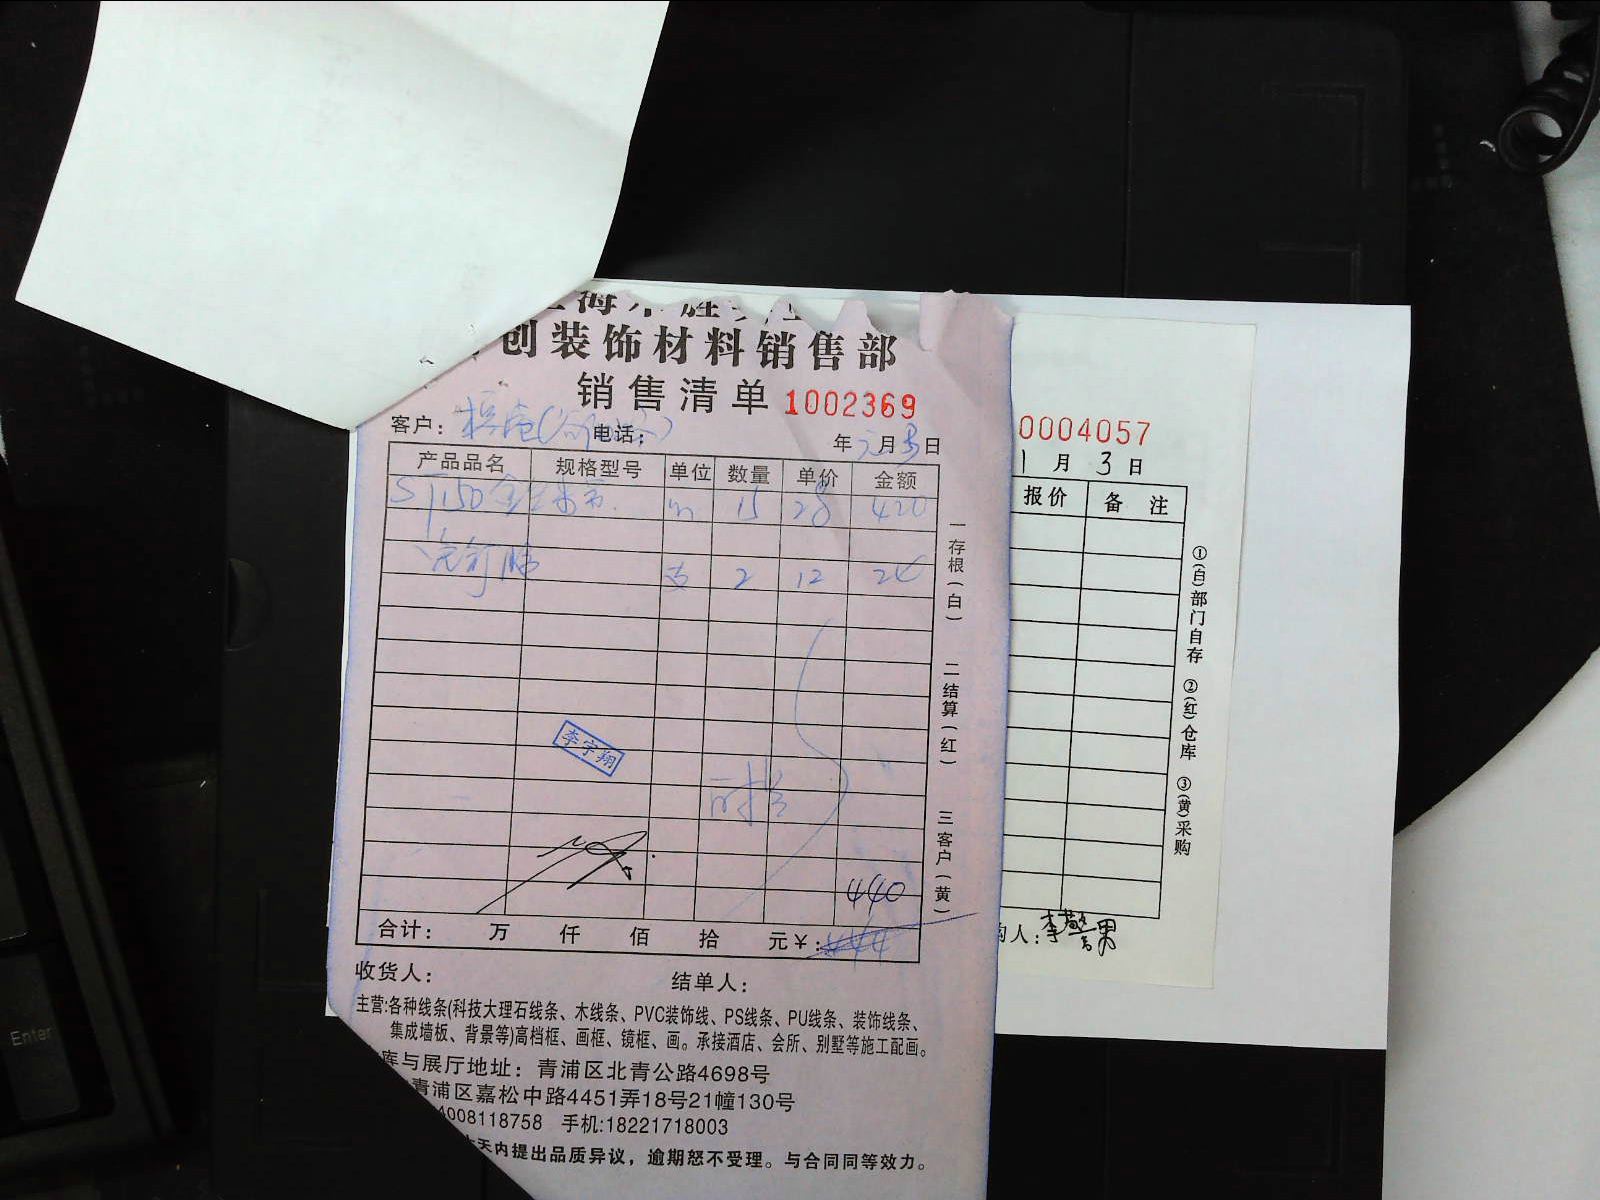 创装饰材料销售部
销售清单 1002369
客户: 电话: 年 月 日
产品品名 规格型号 单位 数量 单价 金额
15 28 420
支 2 12 24
李宇翔
440
合计: 万 仟 佰 拾 元¥: 444
收货人: 结单人:
主营:各种线条(科技大理石线条、木线条、PVC装饰线、PS线条、PU线条、装饰线条、
集成墙板、背景等)高档框、画框、镜框、画。承接酒店、会所、别墅等施工配画。
库与展厅地址: 青浦区北青公路4698号
青浦区嘉松中路4451弄18号21幢130号
4008118758 手机:18221718003
天内提出品质异议，逾期恕不受理。与合同同等效力。
一存根(白) 二结算(红) 三客户(黄)
0004057
1 月 3 日
报价 备 注
①(白)部门自存 ②(红)仓库 ③(黄)采购
人: